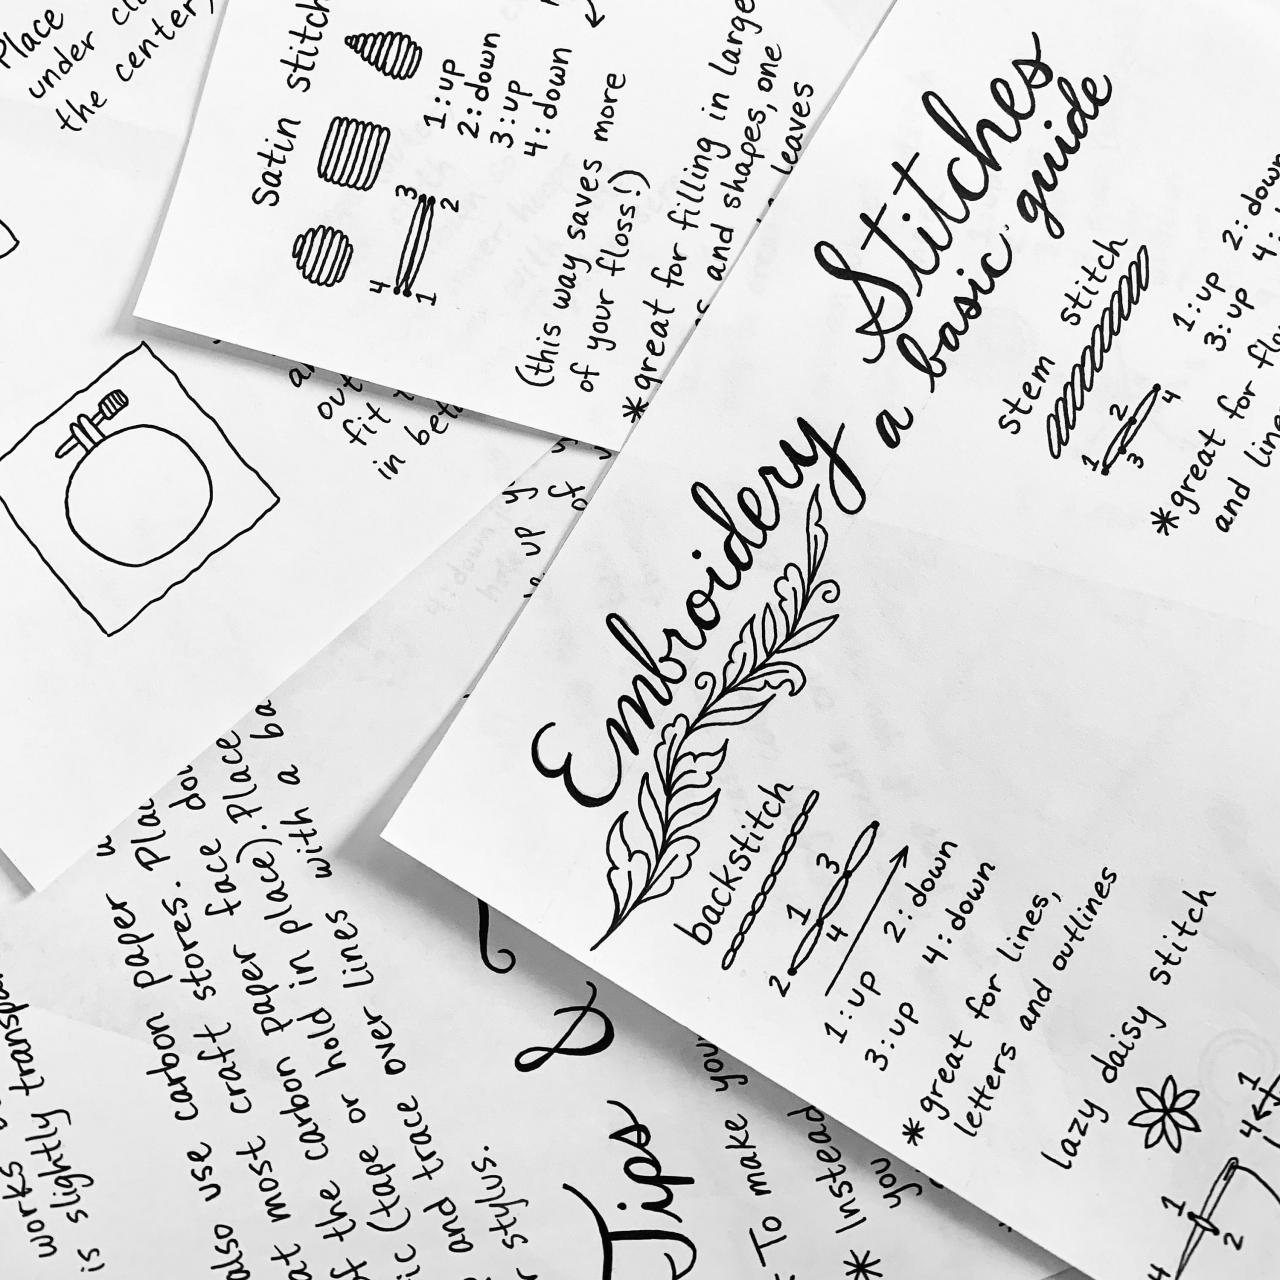 Place
under
the center,
satin stitch
1:up
2:down
3:up
4:down
3
2
4
1
(this way saves more
of your floss!)
*great for filling in large
and shapes, one
leaves
out
fit
in
up
of
Embroidery Stitches
a basic guide
stem stitch
1 2 3 4
1:up 2:down
3:up 4:
*great for
and
backstitch
2 1 4 3
1:up 2:down
3:up 4:down
*great for lines,
letters and outlines
lazy daisy stitch
1
4
1
2
4
works
is slightly
also use carbon paper
at most craft stores.
the carbon paper face
(tape or hold in place). Place
and trace over lines with a
stylus.
&
Tips
To make
* Instead
you